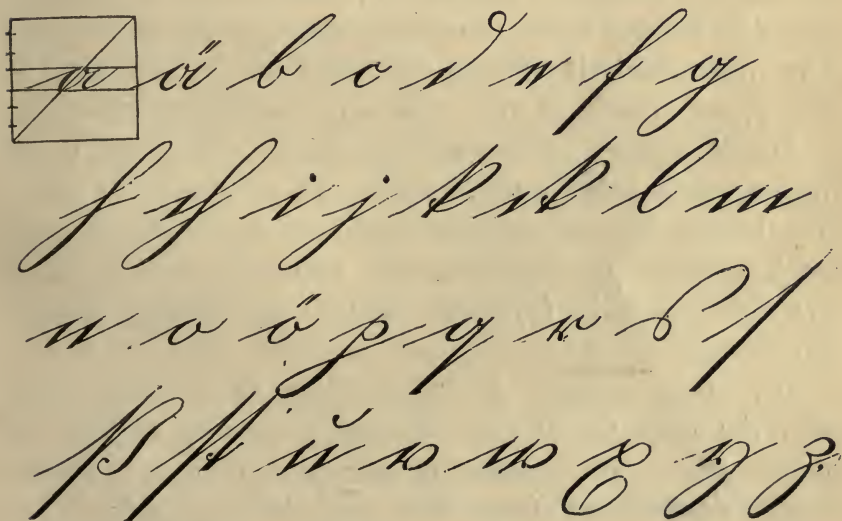 a ä b c d e f g
h ch i j k ck l m
n o ö p q r s ſ
ß ſt u v w x y z.